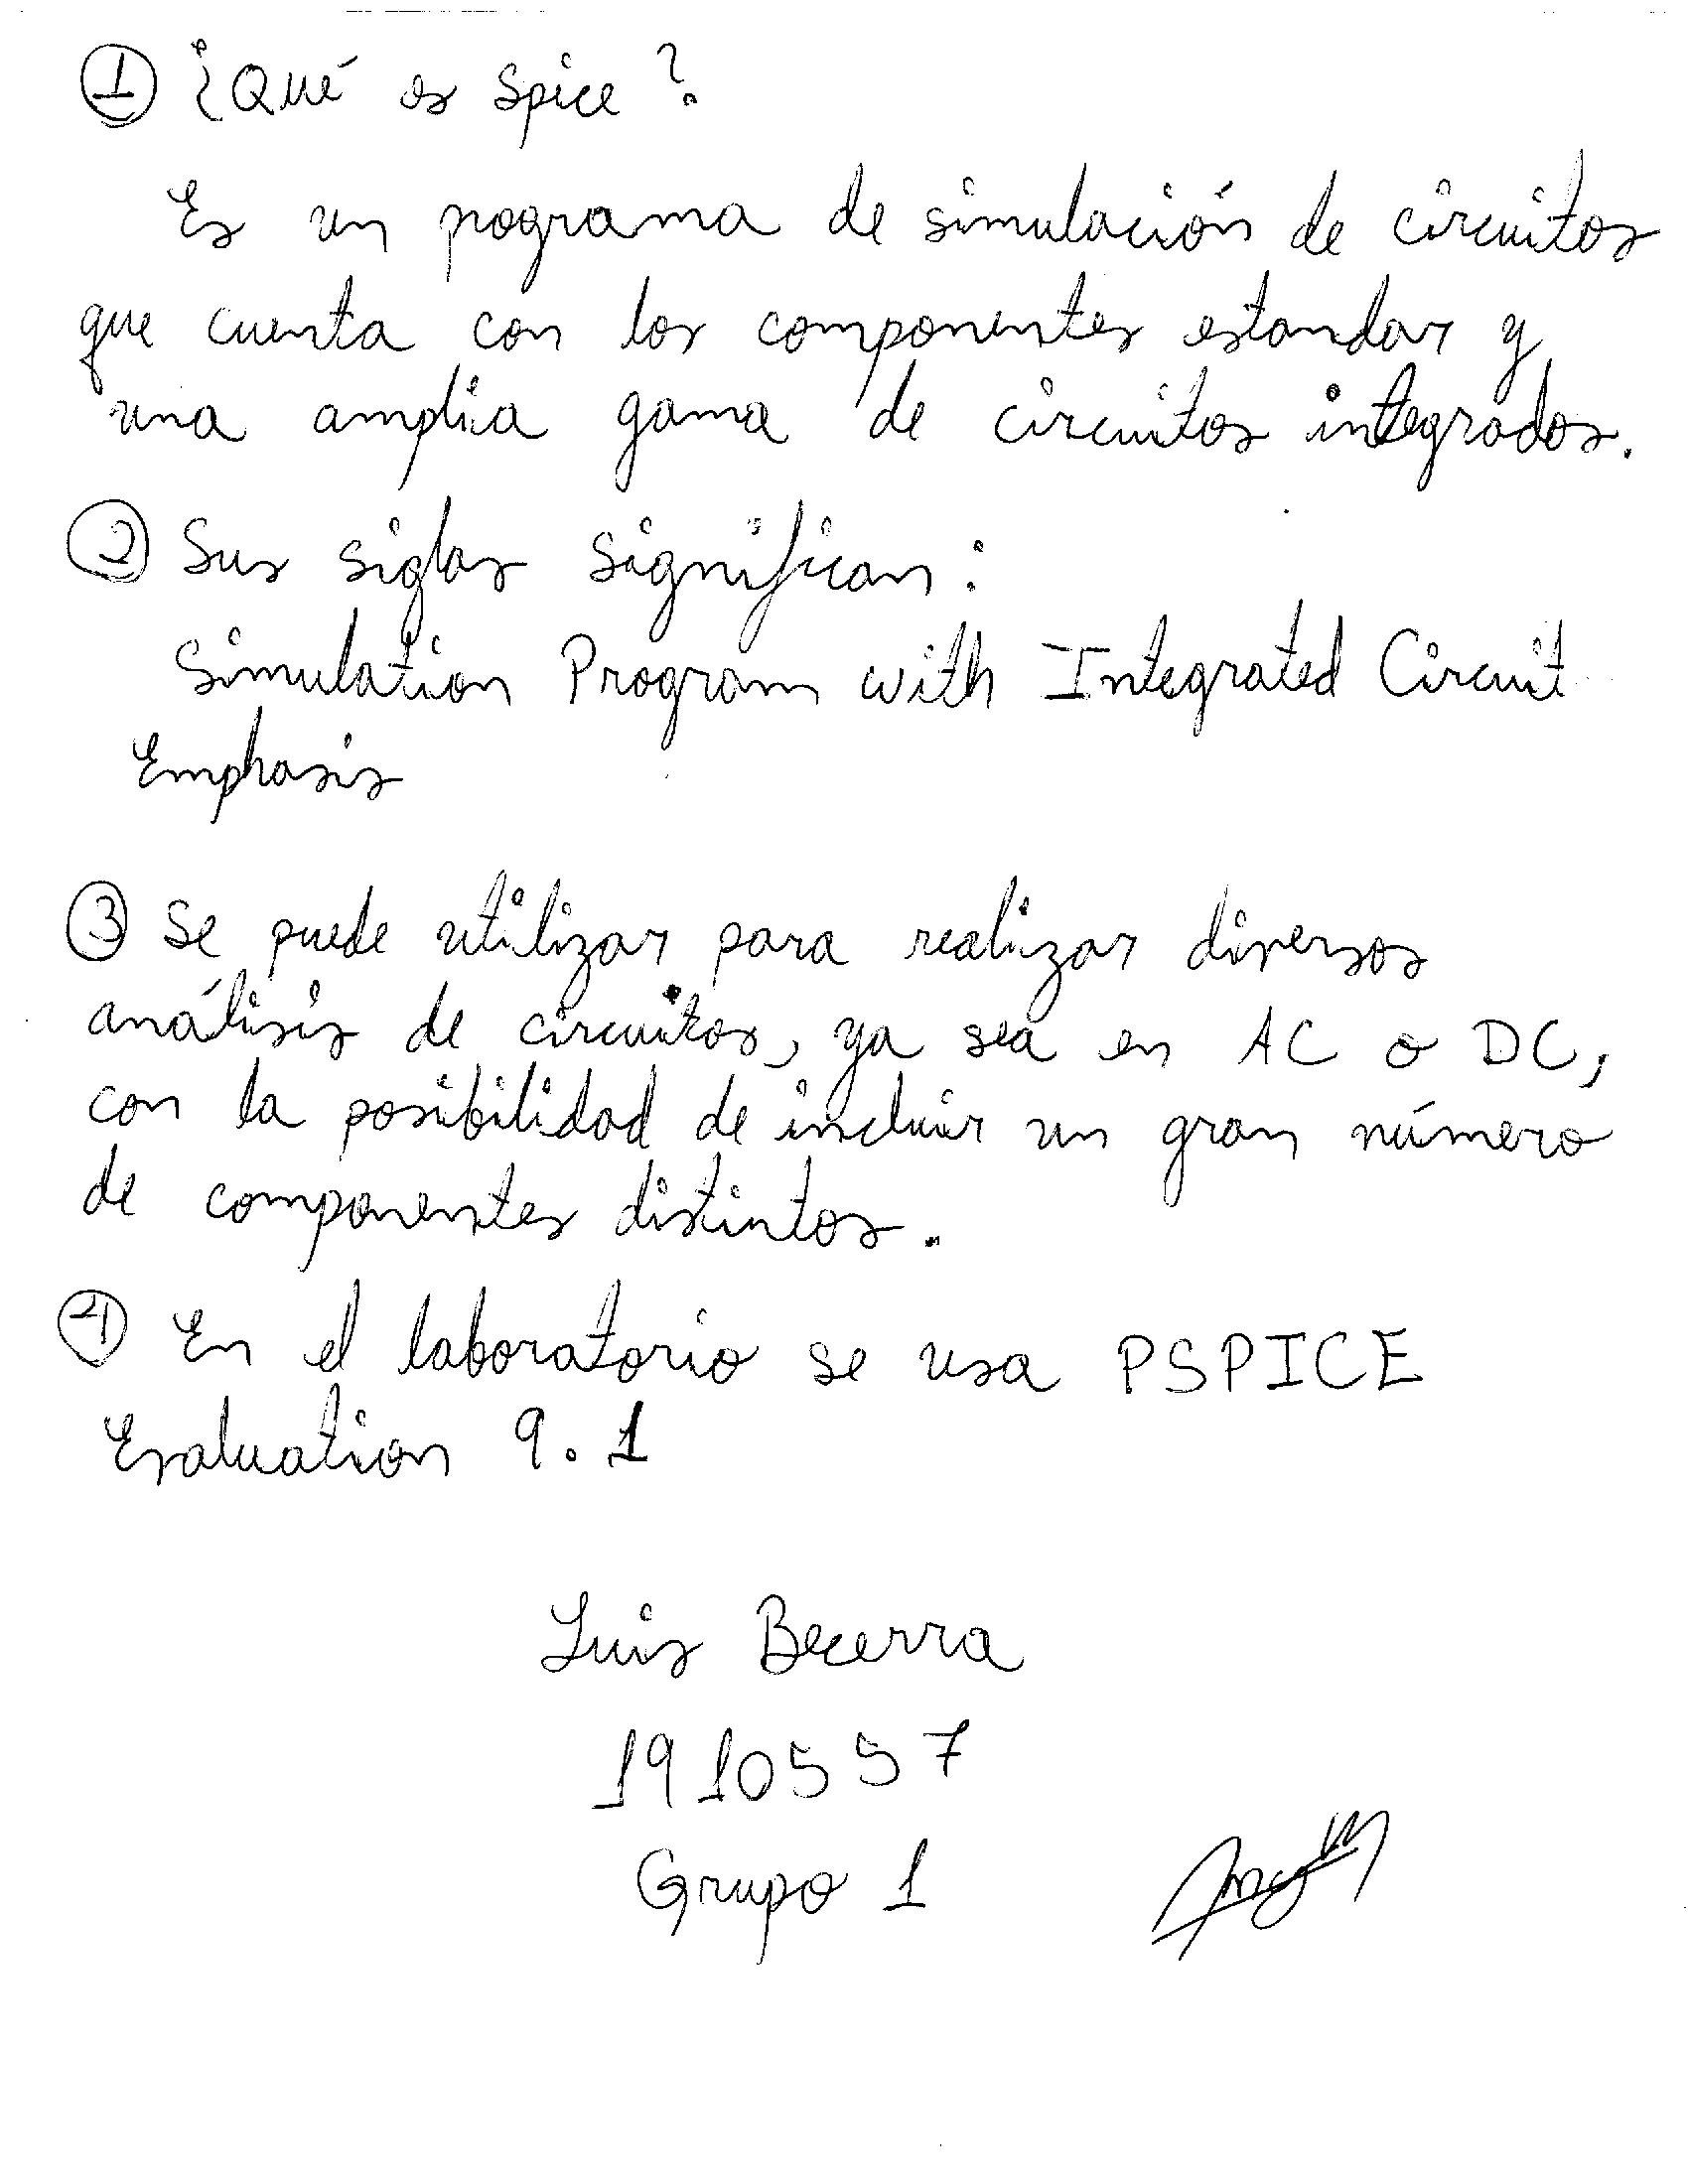 ① ¿Qué es spice?
Es un pograma de simulación de circuitos
que cuenta con los componentes estandar y
una amplia gama de circuitos integrados.
② Sus siglas significan:
Simulation Program with Integrated Circuit
Emphasis
③ Se puede utilizar para realizar diversos
análisis de circuitos, ya sea en AC o DC,
con la posibilidad de incluir un gran número
de componentes distintos.
④ En el laboratorio se usa PSPICE
Evaluation 9.1
Luis Becerra
1910557
Grupo 1